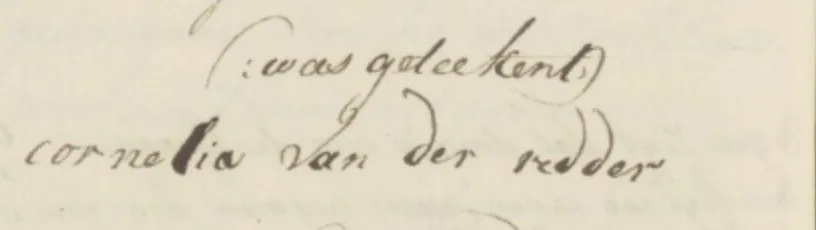 (: was geteekent:)
cornelia van der redder